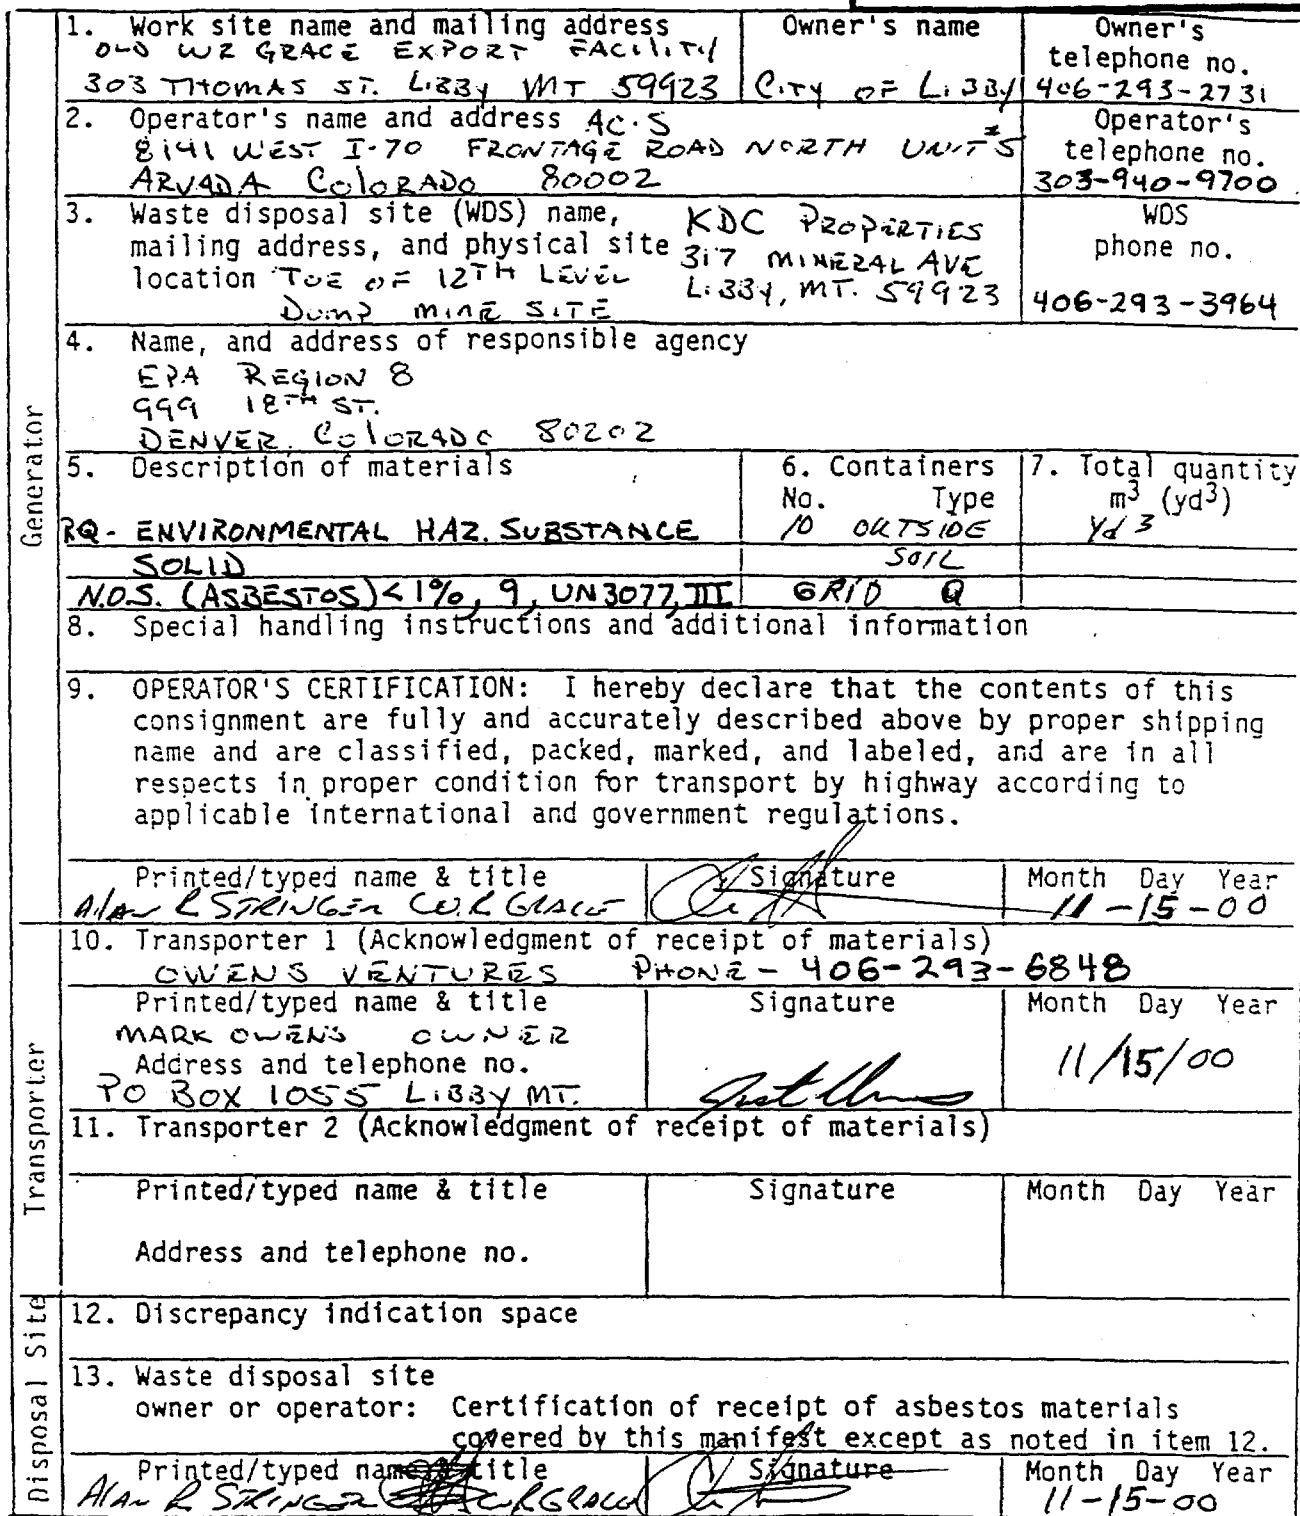 Generator
1. Work site name and mailing address
OLD WR GRACE EXPORT FACILITY
303 THOMAS ST. LIBBY MT 59923
Owner's name
CITY OF LIBBY
Owner's telephone no.
406-293-2731
2. Operator's name and address AC.S
8141 WEST I-70 FRONTAGE ROAD NORTH UNIT #5
ARVADA COLORADO 80002
Operator's telephone no.
303-940-9700
3. Waste disposal site (WDS) name,
mailing address, and physical site
location TOE OF 12TH LEVEL
DUMP MINE SITE
KDC PROPERTIES
317 MINERAL AVE
LIBBY, MT. 59923
WDS
phone no.
406-293-3964
4. Name, and address of responsible agency
EPA REGION 8
999 18TH ST.
DENVER, COLORADO 80202
5. Description of materials
RQ - ENVIRONMENTAL HAZ. SUBSTANCE
SOLID
N.O.S. (ASBESTOS) < 1%, 9, UN3077, III
6. Containers
No. Type
10 OUTSIDE
SOIL
GRID Q
7. Total quantity
m3 (yd3)
Yd 3
8. Special handling instructions and additional information
9. OPERATOR'S CERTIFICATION: I hereby declare that the contents of this
consignment are fully and accurately described above by proper shipping
name and are classified, packed, marked, and labeled, and are in all
respects in proper condition for transport by highway according to
applicable international and government regulations.
Printed/typed name & title
Alan R STRINGER W.R GRACE
Signature
Month Day Year
11-15-00
Transporter
10. Transporter 1 (Acknowledgment of receipt of materials)
OWENS VENTURES PHONE - 406-293-6848
Printed/typed name & title
MARK OWENS OWNER
Address and telephone no.
PO BOX 1055 LIBBY MT.
Signature
Month Day Year
11/15/00
11. Transporter 2 (Acknowledgment of receipt of materials)
Printed/typed name & title
Signature
Month Day Year
Address and telephone no.
Disposal Site
12. Discrepancy indication space
13. Waste disposal site
owner or operator: Certification of receipt of asbestos materials
covered by this manifest except as noted in item 12.
Printed/typed name & title
Alan R STRINGER W.R GRACE
Signature
Month Day Year
11-15-00